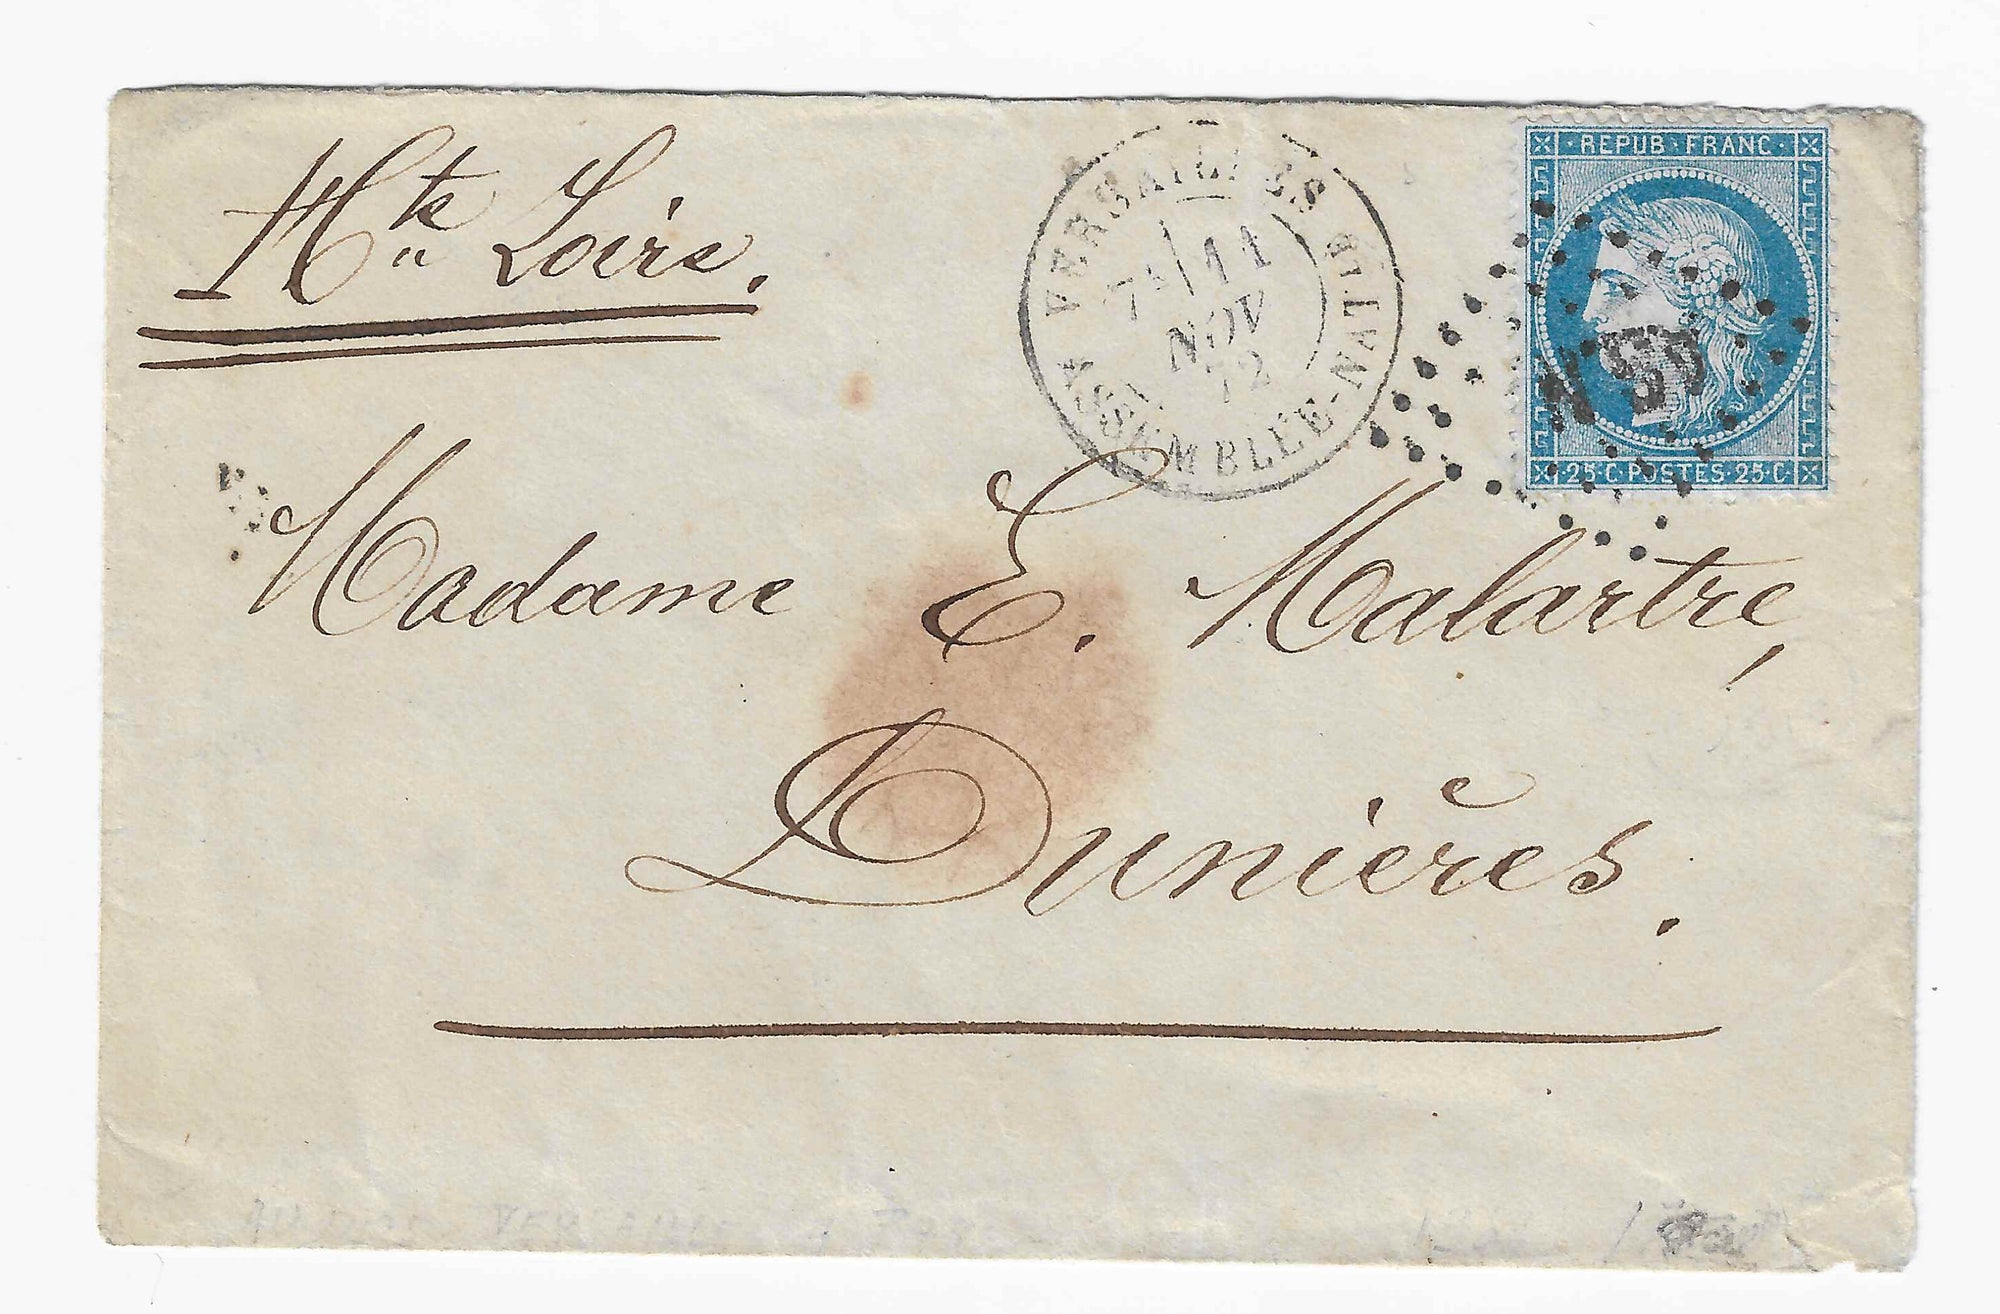 Hte Loire.
VERSAILLES
7E 11
NOV
72
ASSEMBLÉE-NATLE
REPUB·FRANC·
25·C·POSTES·25·C
Madame E. Malartre,
Dunières.